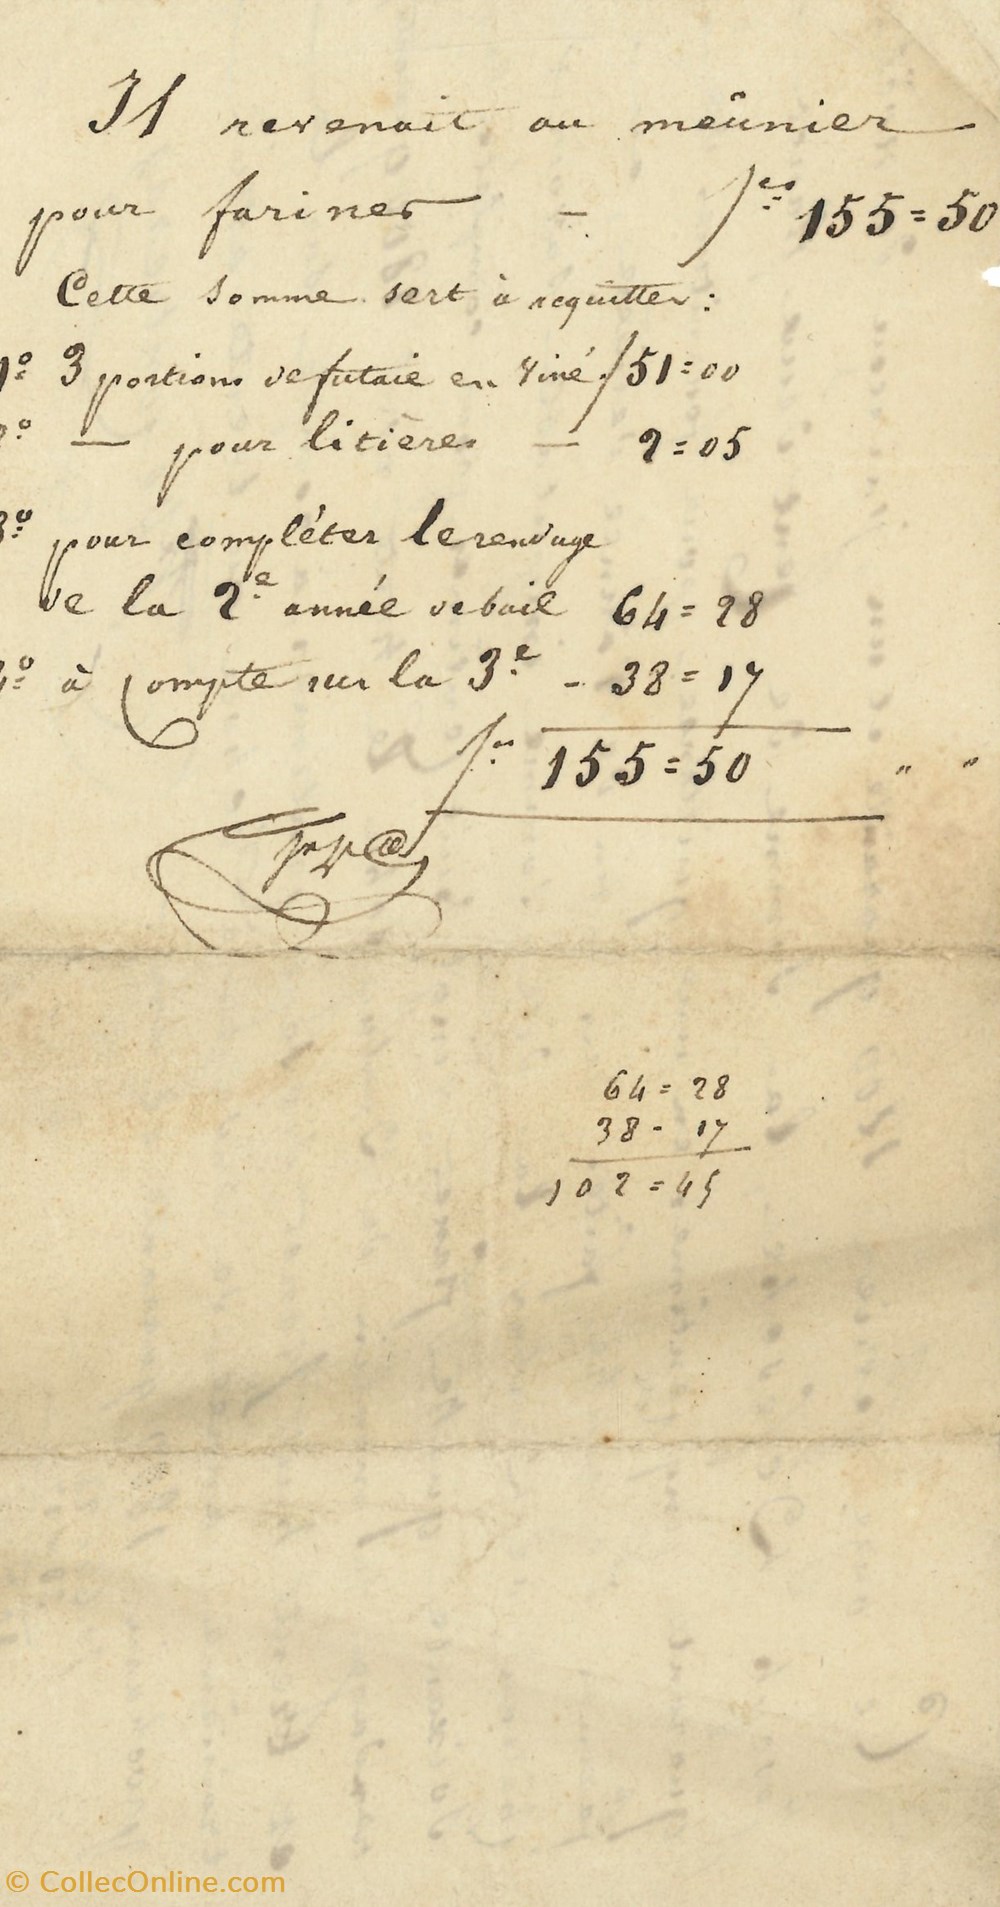 Il revenait au meûnier
pour farines - frs 155=50
Cette somme sert à acquitter:
1º 3 portions de futaie en Viné f 51=00
2º — pour litières — 2=05
3º pour compléter le rendage
de la 2e année de bail 64=28
4º à Compte sur la 3e - 38=17
frs 155=50 " "
64=28
38- 17
102=45
© CollecOnline.com